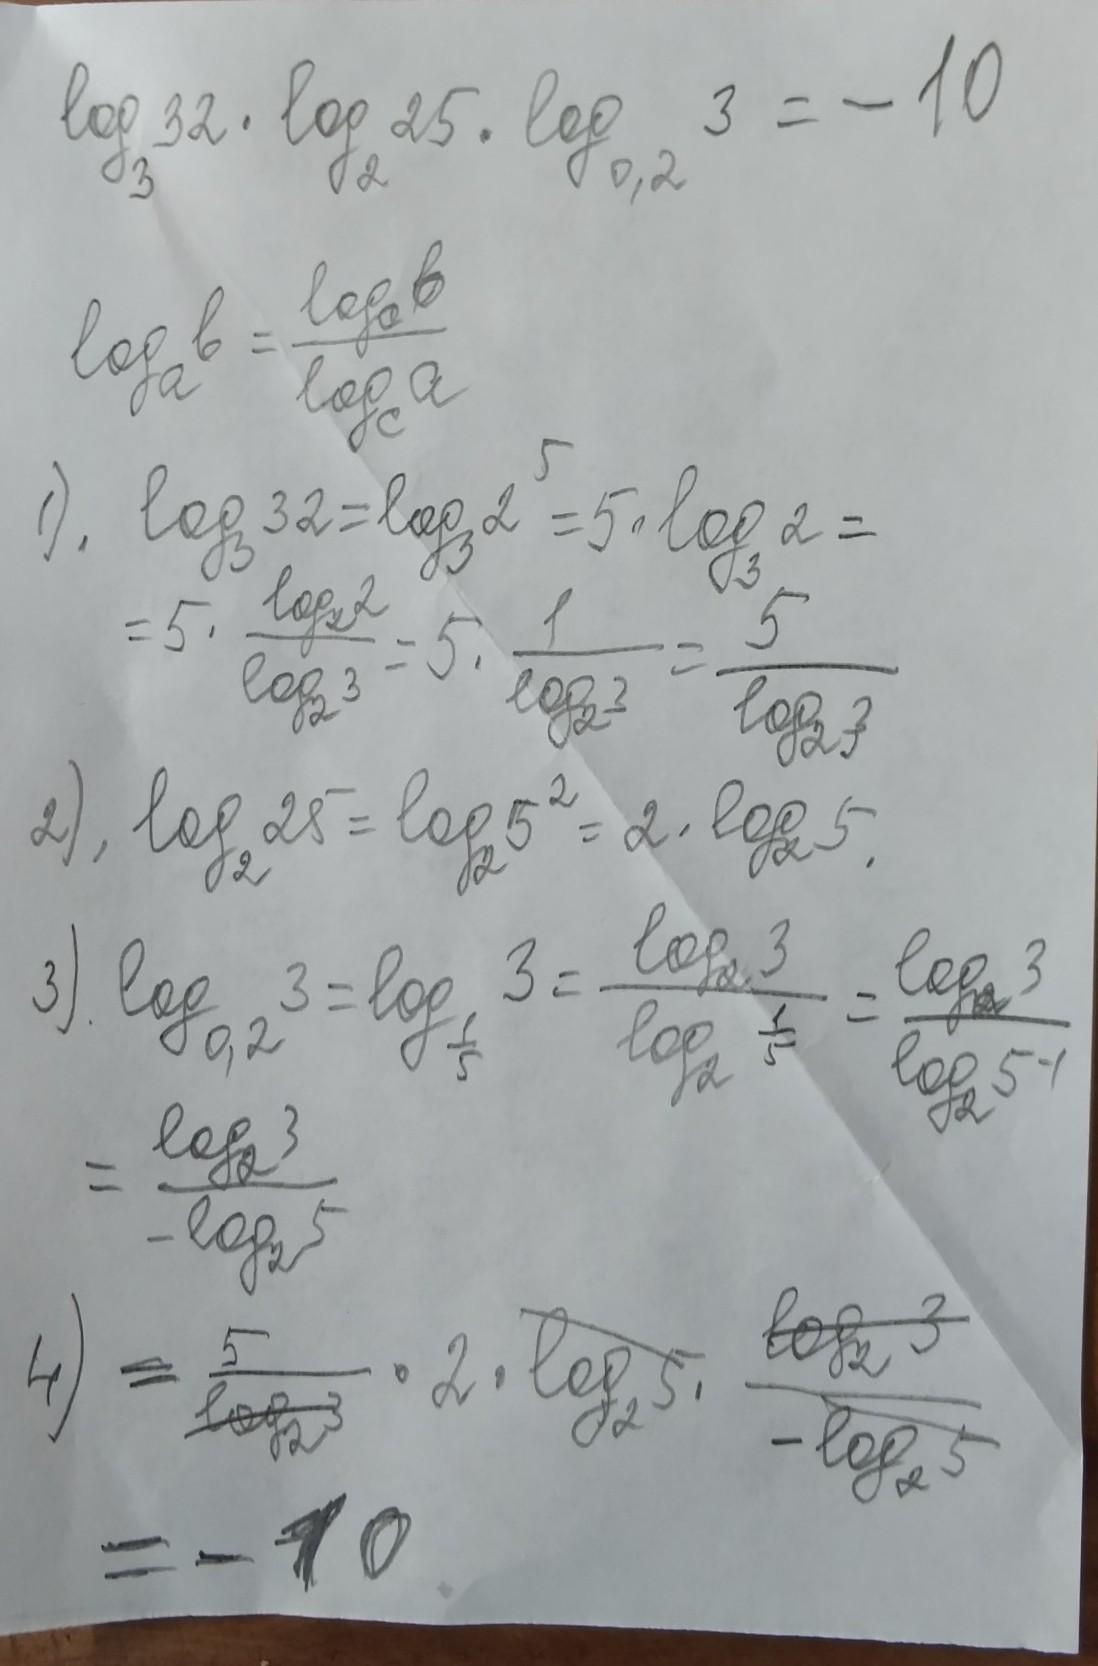 log₃32 · log₂25 · log₀,₂ 3 = -10
logₐb = log_c b / log_c a
1). log₃32 = log₃2⁵ = 5 · log₃2 =
= 5 · log₂2 / log₂3 = 5 · 1 / log₂3 = 5 / log₂3
2). log₂25 = log₂5² = 2 · log₂5.
3). log₀,₂ 3 = log_(1/5) 3 = log₂3 / log₂ 1/5 = log₂3 / log₂5⁻¹
= log₂3 / -log₂5
4) = 5 / log₂3 · 2 · log₂5 · log₂3 / -log₂5
= -10